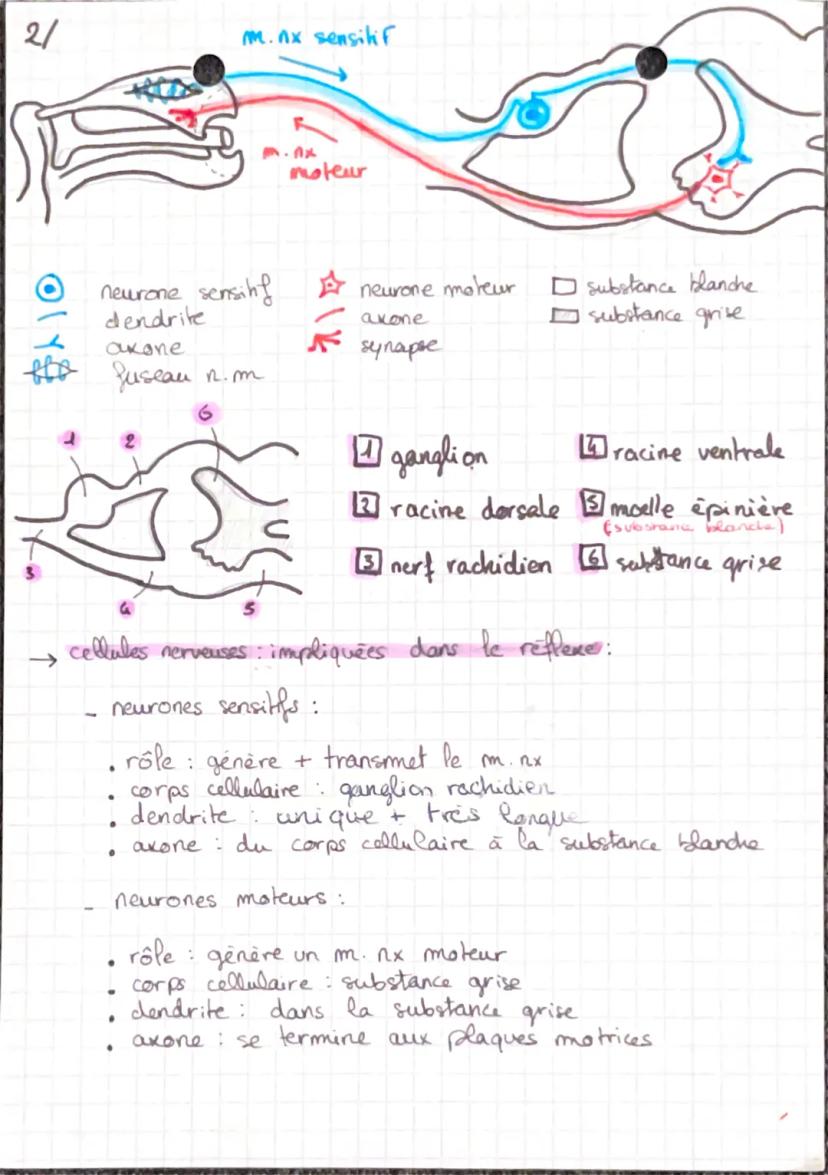 2/
m. nx sensitif
m. nx
moteur
neurone sensitif
dendrite
axone
fuseau n. m
neurone moteur
axone
synapse
substance blanche
substance grise
1
2
6
3
4
5
1 ganglion
2 racine dorsale
3 nerf rachidien
4 racine ventrale
5 moelle épinière
(substance blanche)
6 substance grise
→ cellules nerveuses : impliquées dans le réflexe :
- neurones sensitifs :
. rôle : génère + transmet le m. nx
. corps cellulaire : ganglion rachidien
. dendrite : unique + très longue
. axone : du corps cellulaire à la substance blanche
- neurones moteurs :
. rôle : génère un m. nx moteur
. corps cellulaire : substance grise
. dendrite : dans la substance grise
. axone : se termine aux plaques motrices